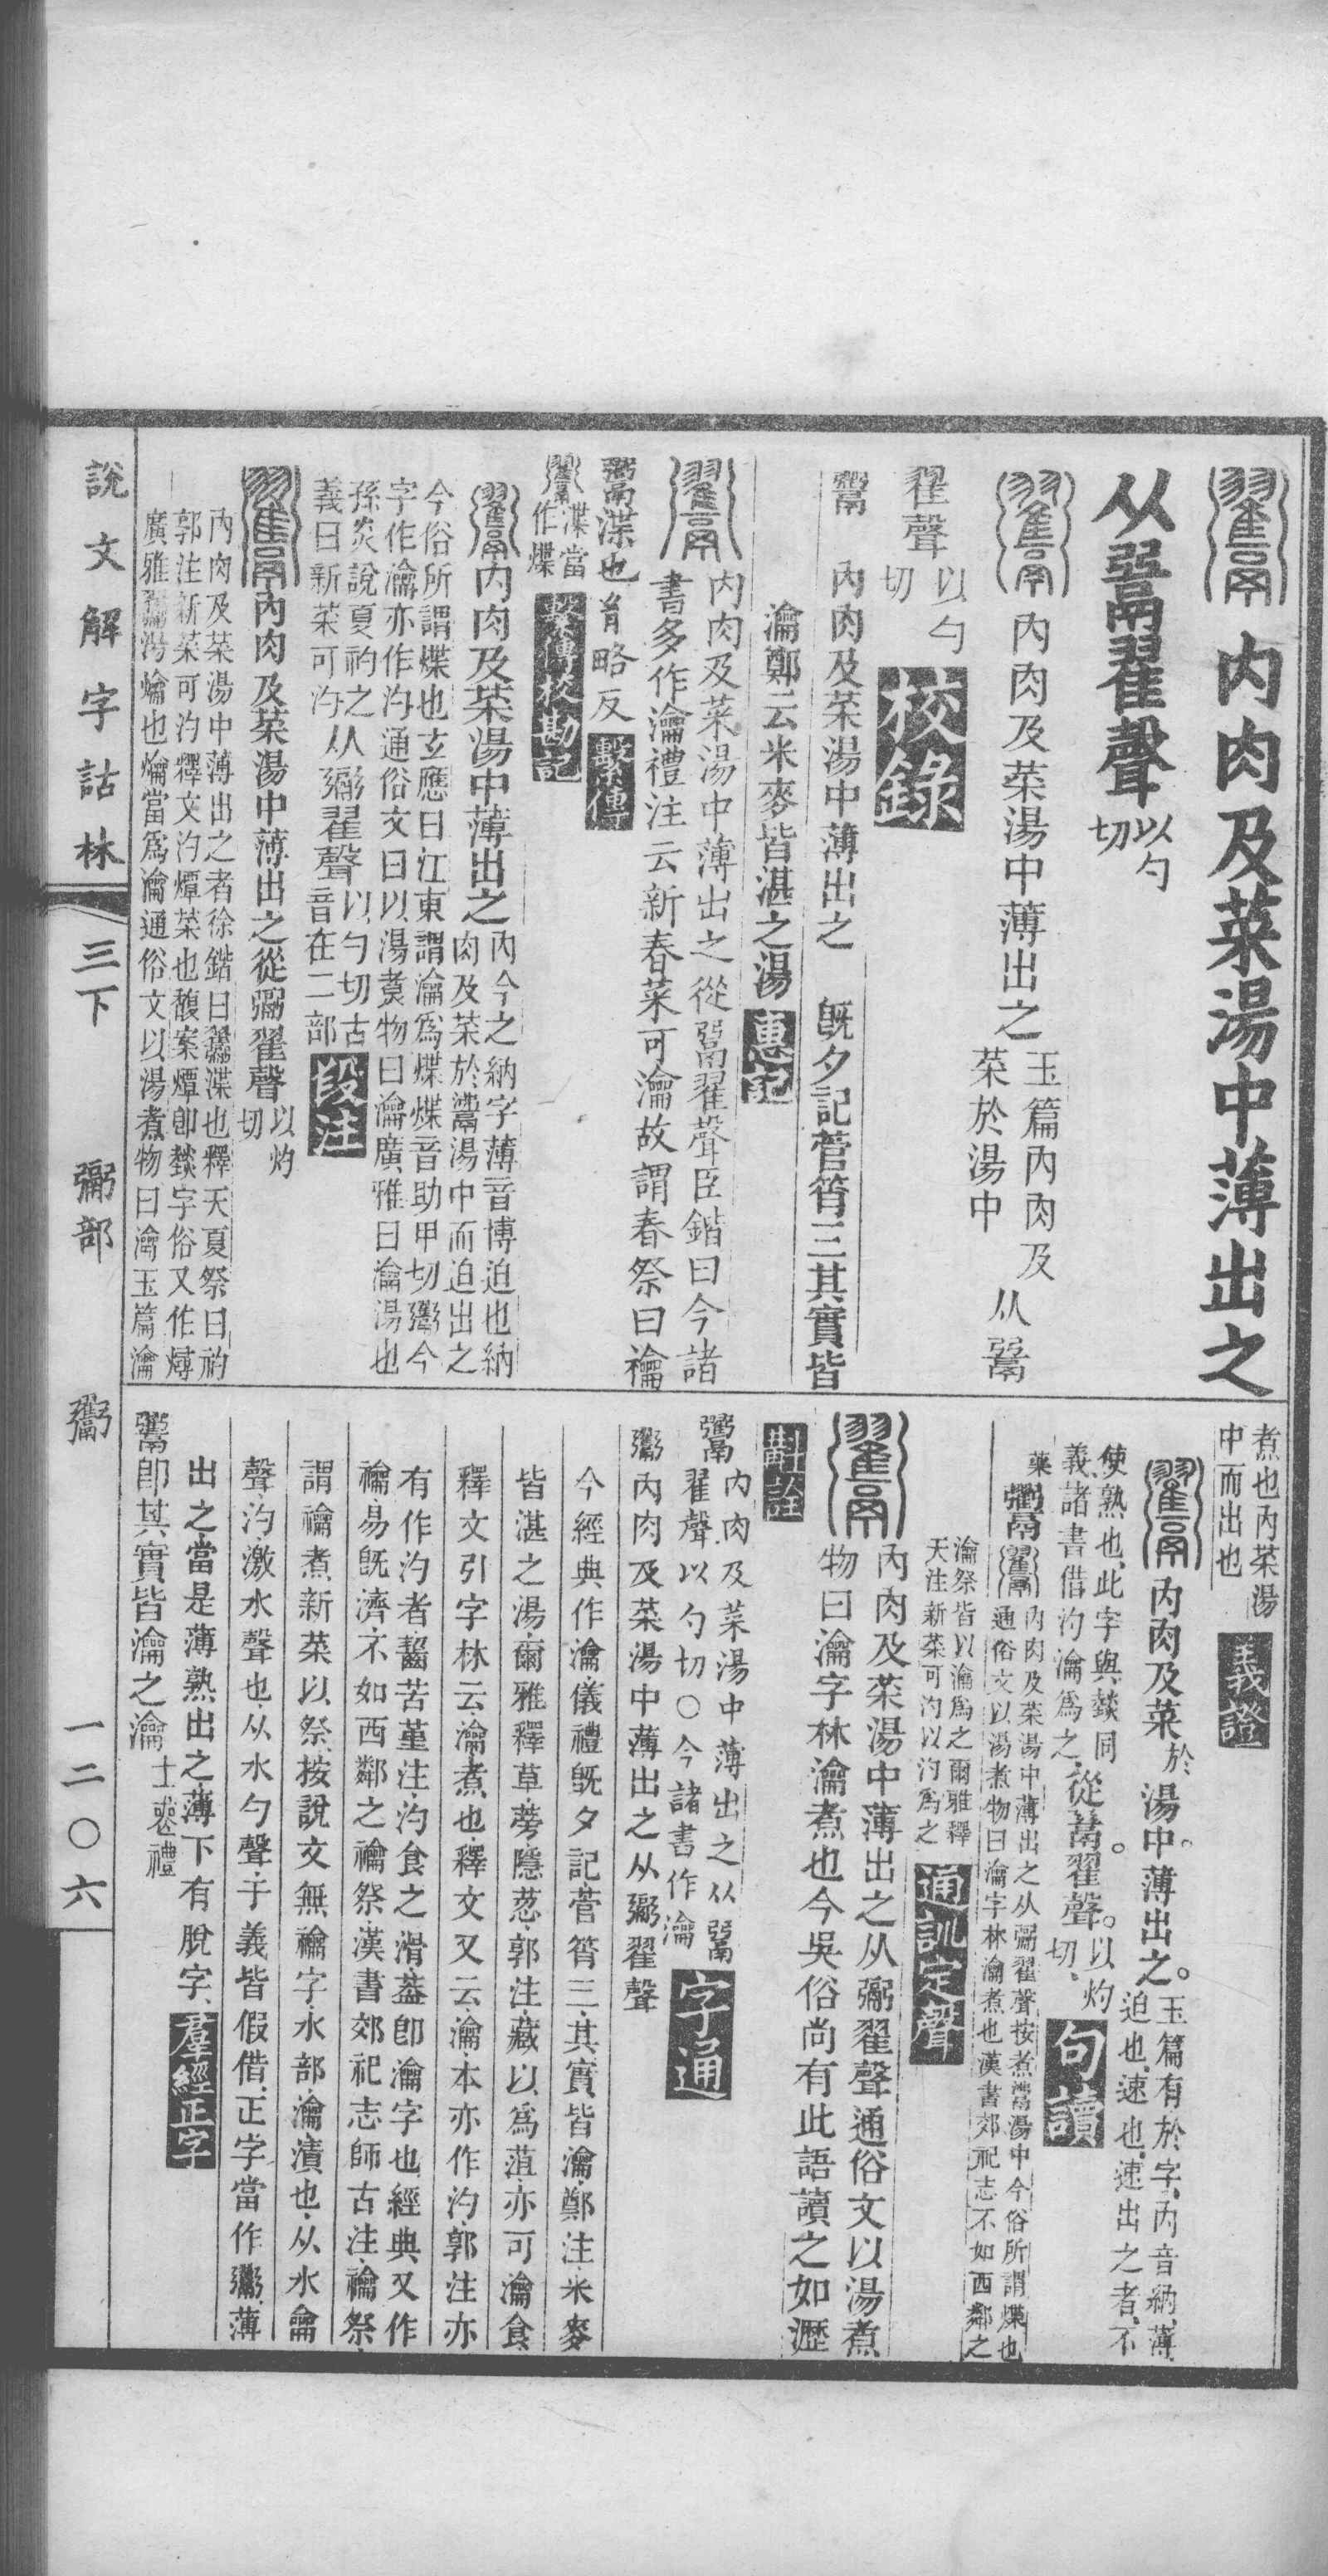 內肉及菜湯中薄出之
从䰜翟聲以勺切
內肉及菜湯中薄出之玉篇內肉及菜於湯中 从䰜
翟聲以勺切 校錄
內肉及菜湯中薄出之 旣夕記菅筲三其實皆
瀹鄭云米麥皆湛之湯 惠記
內肉及菜湯中薄出之從䰜翟聲臣鍇曰今諸
書多作瀹禮注云新春菜可瀹故謂春祭曰禴
渫也 略反 繫傳
渫當作煠 繫傳校勘記
內肉及菜湯中薄出之內今之納字薄音博迫也納肉及菜於鬻湯中而迫出之
今俗所謂煠也玄應曰江東謂瀹爲煠煠音助甲切 今
字作瀹亦作汋通俗文曰以湯煑物曰瀹廣雅曰瀹湯也
孫炎說夏礿之
義曰新菜可汋从䰜翟聲以勺切古音在二部 段注
內肉及菜湯中薄出之從䰜翟聲以灼切
內肉及菜湯中薄出之者徐鍇曰 渫也釋天夏祭曰礿
郭注新菜可汋釋文汋爓菜也馥案 卽 字俗又作
廣雅 湯爚也爚當爲瀹通俗文以湯煮物曰瀹玉篇瀹
煮也內菜湯
中而出也 義證
內肉及菜於湯中。薄出之。玉篇有於字、內音納、薄迫也、速也、速出之者、不
使熟也、此字與 同
義諸書借汋瀹爲之、從䰜。翟聲。以灼切、 句讀
內肉及菜湯中薄出之从䰜翟聲按煮鬻湯中今俗所謂煠也
通俗文以湯煮物曰瀹字林瀹煮也漢書郊祀志不如西鄰之
瀹祭皆以瀹爲之爾雅釋
天注新菜可汋以汋爲之 通訓定聲
內肉及菜湯中薄出之从䰜翟聲通俗文以湯煮
物曰瀹字林瀹煮也今吳俗尚有此語讀之如瀝
斠詮
內肉及菜湯中薄出之从䰜
翟聲以勺切○今諸書作瀹 字通
內肉及菜湯中薄出之从䰜翟聲
今經典作瀹儀禮旣夕記菅筲三其實皆瀹鄭注米麥
皆湛之湯爾雅釋草蒡隱荵郭注藏以爲菹亦可瀹食
釋文引字林云瀹煮也釋文又云瀹本亦作汋郭注亦
有作汋者齧苦堇注汋食之滑蓋卽瀹字也經典又作
禴易旣濟不如西鄰之禴祭漢書郊祀志師古注禴祭
謂禴煮新菜以祭按說文無禴字水部瀹漬也从水龠
聲汋激水聲也从水勺聲于義皆假借正字當作 薄
出之當是薄熟出之薄下有脫字、 羣經正字
卽其實皆瀹之瀹士喪禮
說文解字詁林 三下 䰜部 一二〇六